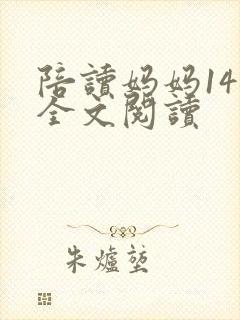 陪讀妈妈14
全文閱讀
朱爐堃